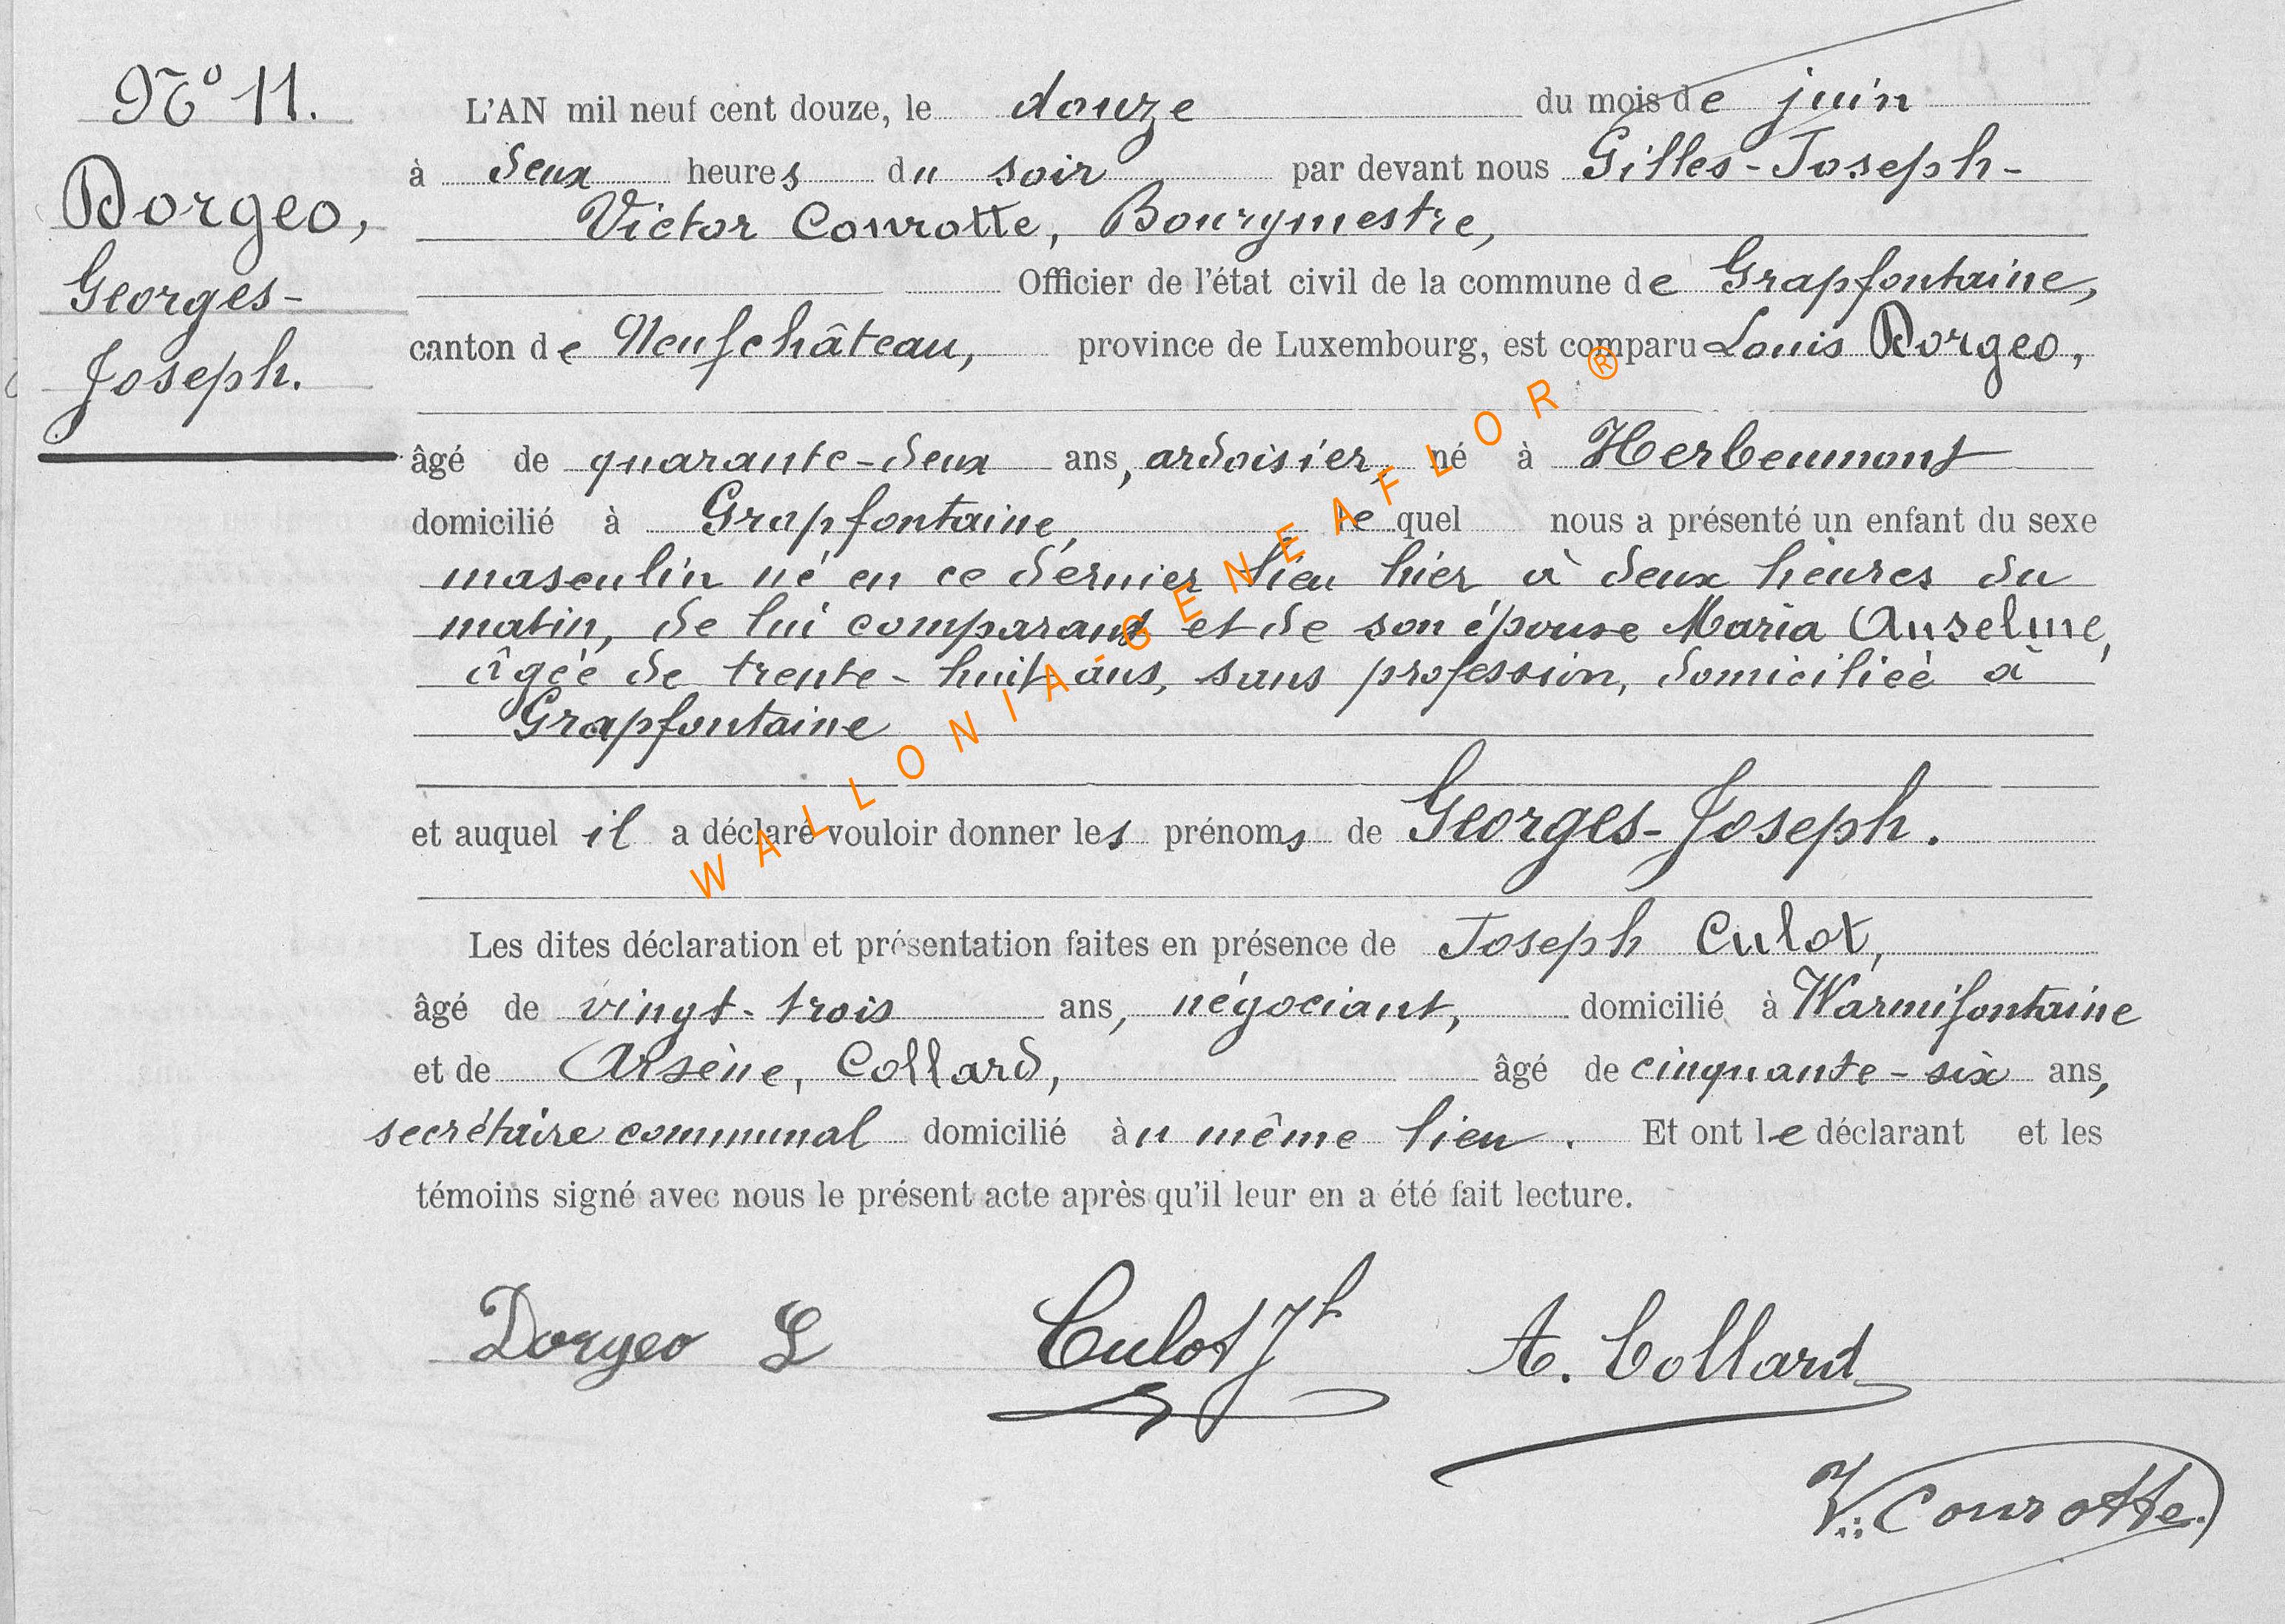 N° 11.
Dorgeo,
Georges-
Joseph.
L'AN mil neuf cent douze, le douze du mois de juin
à deux heures du soir par devant nous Gilles-Joseph-
Victor Conrotte, Bourgmestre,
Officier de l'état civil de la commune de Grapfontaine,
canton de Neufchâteau, province de Luxembourg, est comparu Louis Dorgeo,
âgé de quarante-deux ans, ardoisier, né à Herbeumont
domicilié à Grapfontaine, lequel nous a présenté un enfant du sexe
masculin né en ce dernier lieu hier à deux heures du
matin, de lui comparant et de son épouse Maria Anselme,
âgée de trente-huit ans, sans profession, domiciliée à
Grapfontaine
et auquel il a déclaré vouloir donner les prénoms de Georges-Joseph.
Les dites déclaration et présentation faites en présence de Joseph Culot,
âgé de vingt-trois ans, négociant, domicilié à Warmifontaine
et de Arsène, Collard, âgé de cinquante-six ans,
secrétaire communal domicilié au même lieu. Et ont le déclarant et les
témoins signé avec nous le présent acte après qu'il leur en a été fait lecture.
Dorgeo L Culot Jh A. Collard
V. Conrotte
WALLONIA-GENEAFLOR ®